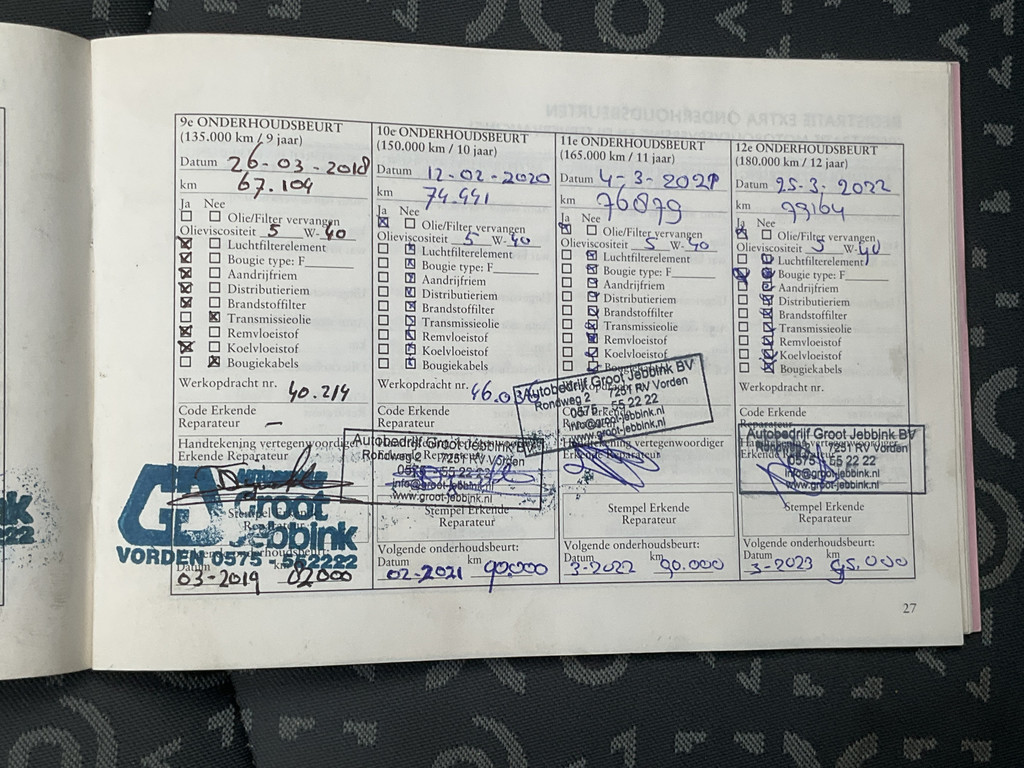 9e ONDERHOUDSBEURT
(135.000 km / 9 jaar)
Datum 26-03-2018
km 67.104
Ja Nee
Olie/Filter vervangen
Olieviscositeit 5 W-40
Luchtfilterelement
Bougie type: F
Aandrijfriem
Distributieriem
Brandstoffilter
Transmissieolie
Remvloeistof
Koelvloeistof
Bougiekabels
Werkopdracht nr. 40.214
Code Erkende
Reparateur –
Handtekening vertegenwoordiger
Erkende Reparateur
Groot
Jebbink
VORDEN 0575-552222
Stempel Erkende
Reparateur
Datum km
03-2019
10e ONDERHOUDSBEURT
(150.000 km / 10 jaar)
Datum 12-02-2020
km 74.441
Ja Nee
Olie/Filter vervangen
Olieviscositeit 5 W-40
Luchtfilterelement
Bougie type: F
Aandrijfriem
Distributieriem
Brandstoffilter
Transmissieolie
Remvloeistof
Koelvloeistof
Bougiekabels
Werkopdracht nr.
Code Erkende
Reparateur
Autobedrijf Groot Jebbink BV
Rondweg 2 7251 RV Vorden
0575 - 55 22 22
info@groot-jebbink.nl
www.groot-jebbink.nl
Stempel Erkende
Reparateur
Volgende onderhoudsbeurt:
Datum km
02-2021 90.000
11e ONDERHOUDSBEURT
(165.000 km / 11 jaar)
Datum 4-3-2021
km 76879
Ja Nee
Olie/Filter vervangen
Olieviscositeit 5 W-40
Luchtfilterelement
Bougie type: F
Aandrijfriem
Distributieriem
Brandstoffilter
Transmissieolie
Remvloeistof
Koelvloeistof
Autobedrijf Groot Jebbink BV
Rondweg 2 7251 RV Vorden
0575 - 55 22 22
info@groot-jebbink.nl
www.groot-jebbink.nl
vertegenwoordiger
Erkende Reparateur
Stempel Erkende
Reparateur
Volgende onderhoudsbeurt:
Datum km
3-2022 90.000
12e ONDERHOUDSBEURT
(180.000 km / 12 jaar)
Datum 25-3-2022
km
Ja Nee
Olie/Filter vervangen
Olieviscositeit 5 W-40
Luchtfilterelement
Bougie type: F
Aandrijfriem
Distributieriem
Brandstoffilter
Transmissieolie
Remvloeistof
Koelvloeistof
Bougiekabels
Werkopdracht nr.
Code Erkende
Reparateur
Autobedrijf Groot Jebbink BV
Rondweg 2 7251 RV Vorden
0575 - 55 22 22
info@groot-jebbink.nl
www.groot-jebbink.nl
Stempel Erkende
Reparateur
Volgende onderhoudsbeurt:
Datum km
3-2023
27